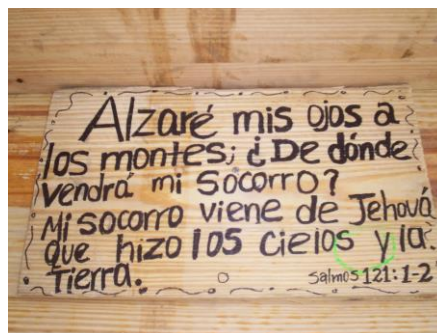 Alzaré mis ojos a
los montes; ¿De dónde
vendrá mi Socorro?
Mi socorro viene de Jehová
que hizo los cielos y la
Tierra.
Salmos 121:1-2